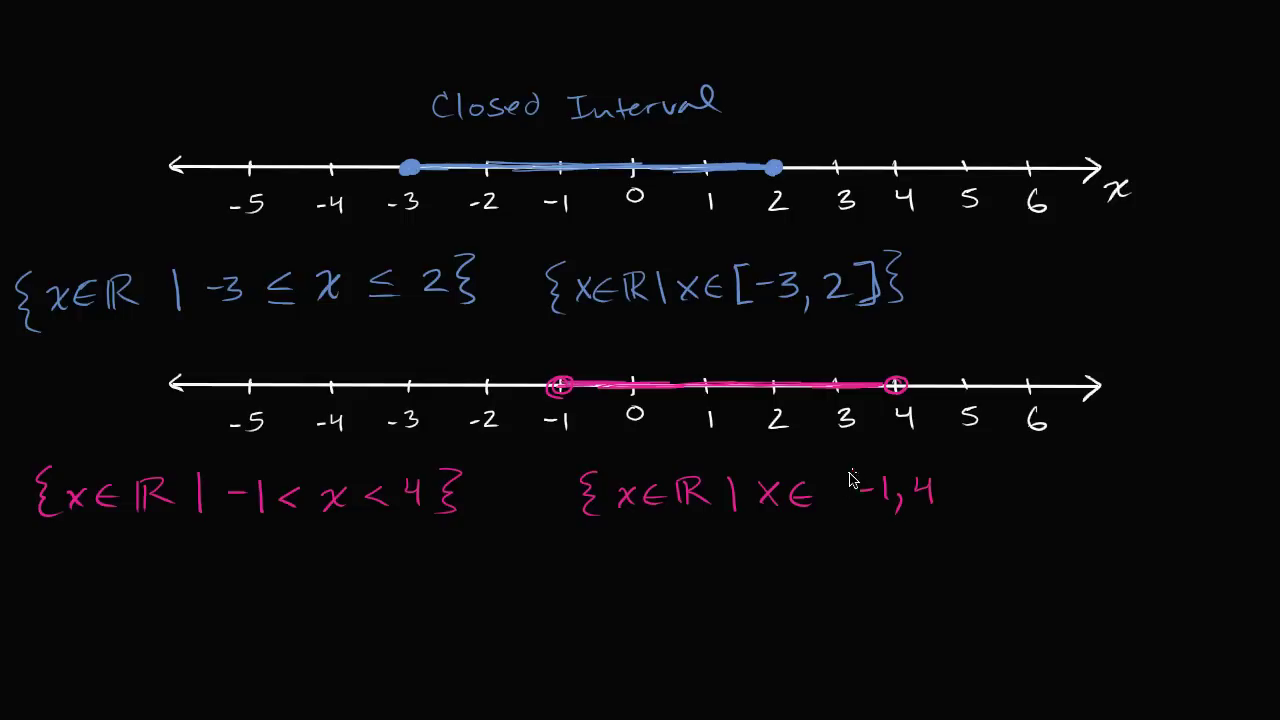 Closed Interval
-5 -4 -3 -2 -1 0 1 2 3 4 5 6 x
{x∈ℝ | -3 ≤ x ≤ 2} {x∈ℝ | x∈[-3, 2]}
-5 -4 -3 -2 -1 0 1 2 3 4 5 6
{x∈ℝ | -1 < x < 4} {x∈ℝ | x∈ -1, 4